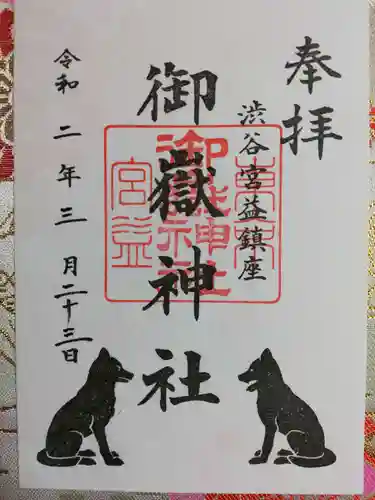 奉拝
渋谷宮益鎮座
御嶽神社
令和二年三月二十三日
宮益
御嶽神社